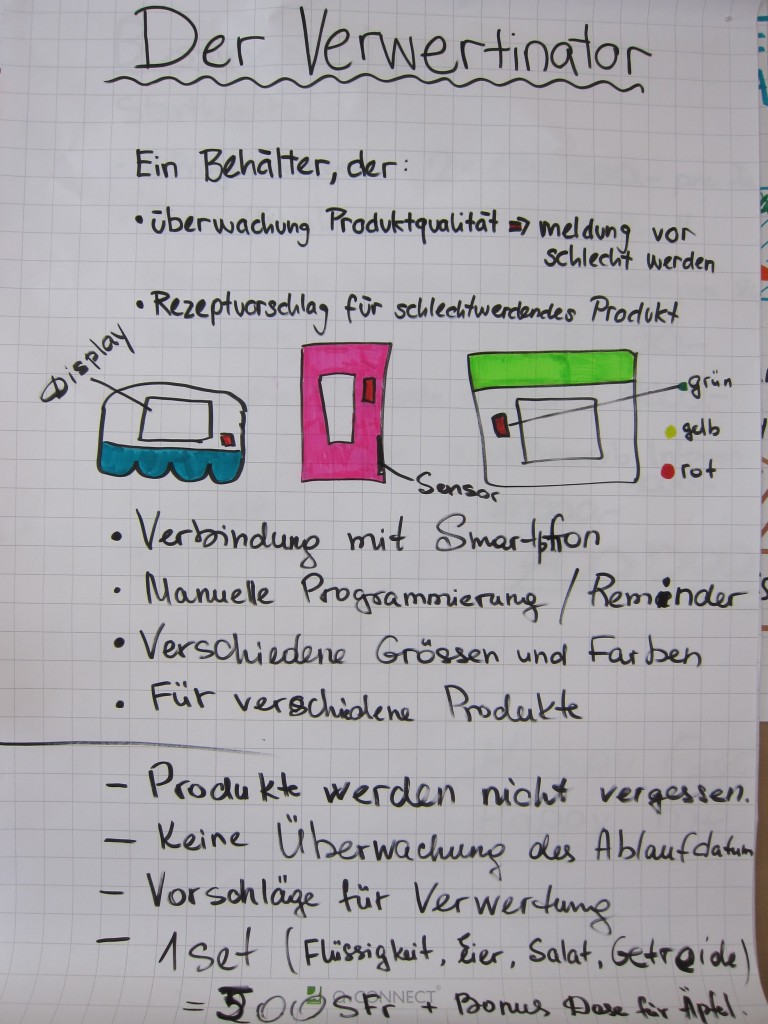 Der Verwertinator
Ein Behälter, der:
• überwachung Produktqualität => meldung vor
schlecht werden
• Rezeptvorschlag für schlechtwerdendes Produkt
Display
grün
gelb
rot
Sensor
• Verbindung mit Smartphon
• Manuelle Programmierung / Reminder
• Verschiedene Grössen und Farben
• Für verschiedene Produkte
– Produkte werden nicht vergessen.
– Keine Überwachung des Ablaufdatum
– Vorschläge für Verwertung
– 1 Set (Flüssigkeit, Eier, Salat, Getreide)
= 500 SFr + Bonus Dose für Äpfel.
CONNECT